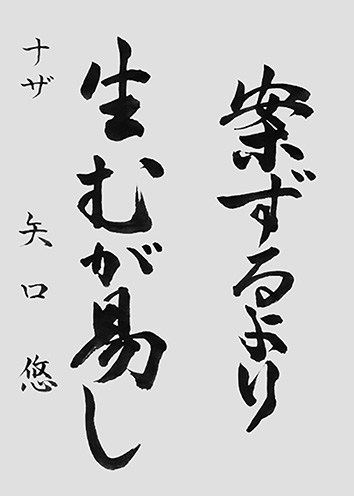 案ずるより
生むが易し
ナザ 矢口 悠